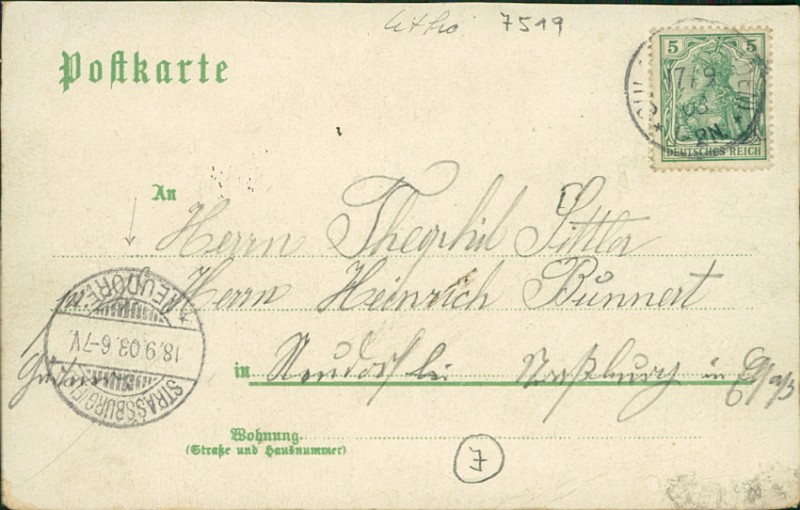 Litho 7519
Postkarte
5 5
17/9
03
PN.
DEUTSCHES REICH
An
Herrn Theophil Sittler
Herrn Heinrich Bunnert
in Neudorf bei Straßburg in Elsaß
NEUDORF
18.9.03.6-7V.
STRASSBURG
Wohnung
(Straße und Hausnummer)
7